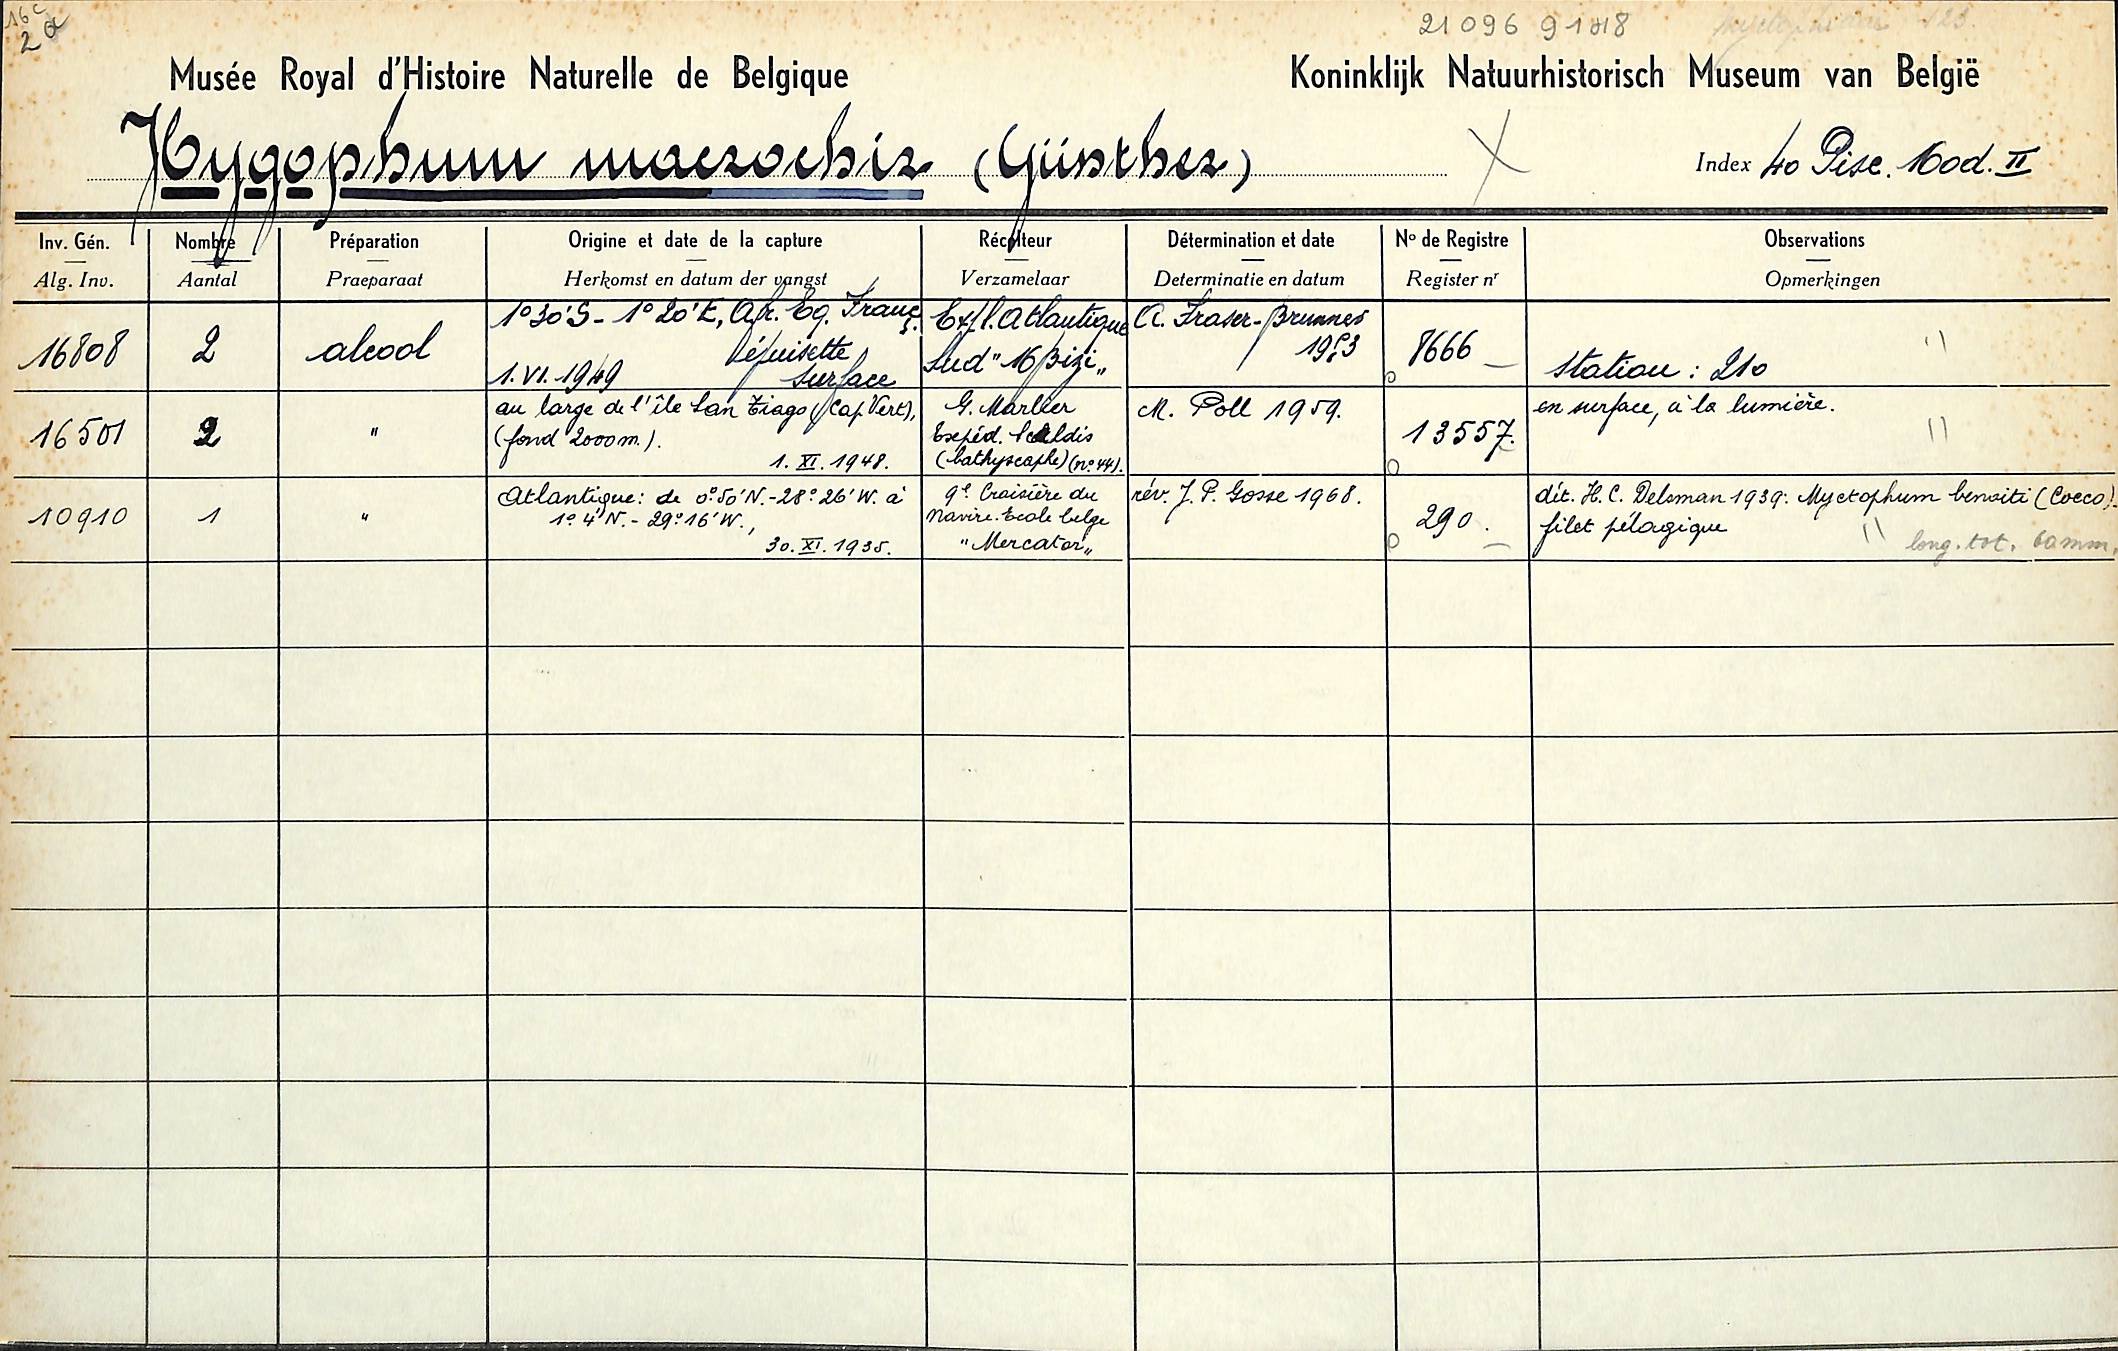 16c
2 a
21096 9118
Musée Royal d'Histoire Naturelle de Belgique
Koninklijk Natuurhistorisch Museum van België
Hygophum macrochir (Günther)
Index 40 Pisc. Mod. II
Inv. Gén. Nombre Préparation Origine et date de la capture Récolteur Détermination et date Nº de Registre Observations
Alg. Inv. Aantal Praeparaat Herkomst en datum der vangst Verzamelaar Determinatie en datum Register nr Opmerkingen
1º30'S - 1º20'E, Afr. Eq. Franç.
épuisette
1.VI.1949 surface
Expl. Atlantique
Sud "Mbizi"
A. Fraser-Brunner
1953
16808 2 alcool 8666 station : 210
au large de l'île San Tiago (Cap Vert),
(fond 2000m.).
1. XI. 1948.
G. Marlier
Expéd. Scaldis
(bathyscaphe) (nº 44).
M. Poll 1959.
en surface, à la lumière.
16501 2 " 13557.
Atlantique: de 0º50'N.-28º26'W. à
1º4'N.-29º16'W.,
30. XI. 1935.
9e Croisière du
Navire-Ecole belge
"Mercator"
rév. J. P. Gosse 1968.
dét. H. C. Delsman 1939: Myctophum benoiti (Cocco).
filet pélagique
long. tot. 60mm.
10910 1 " 290.